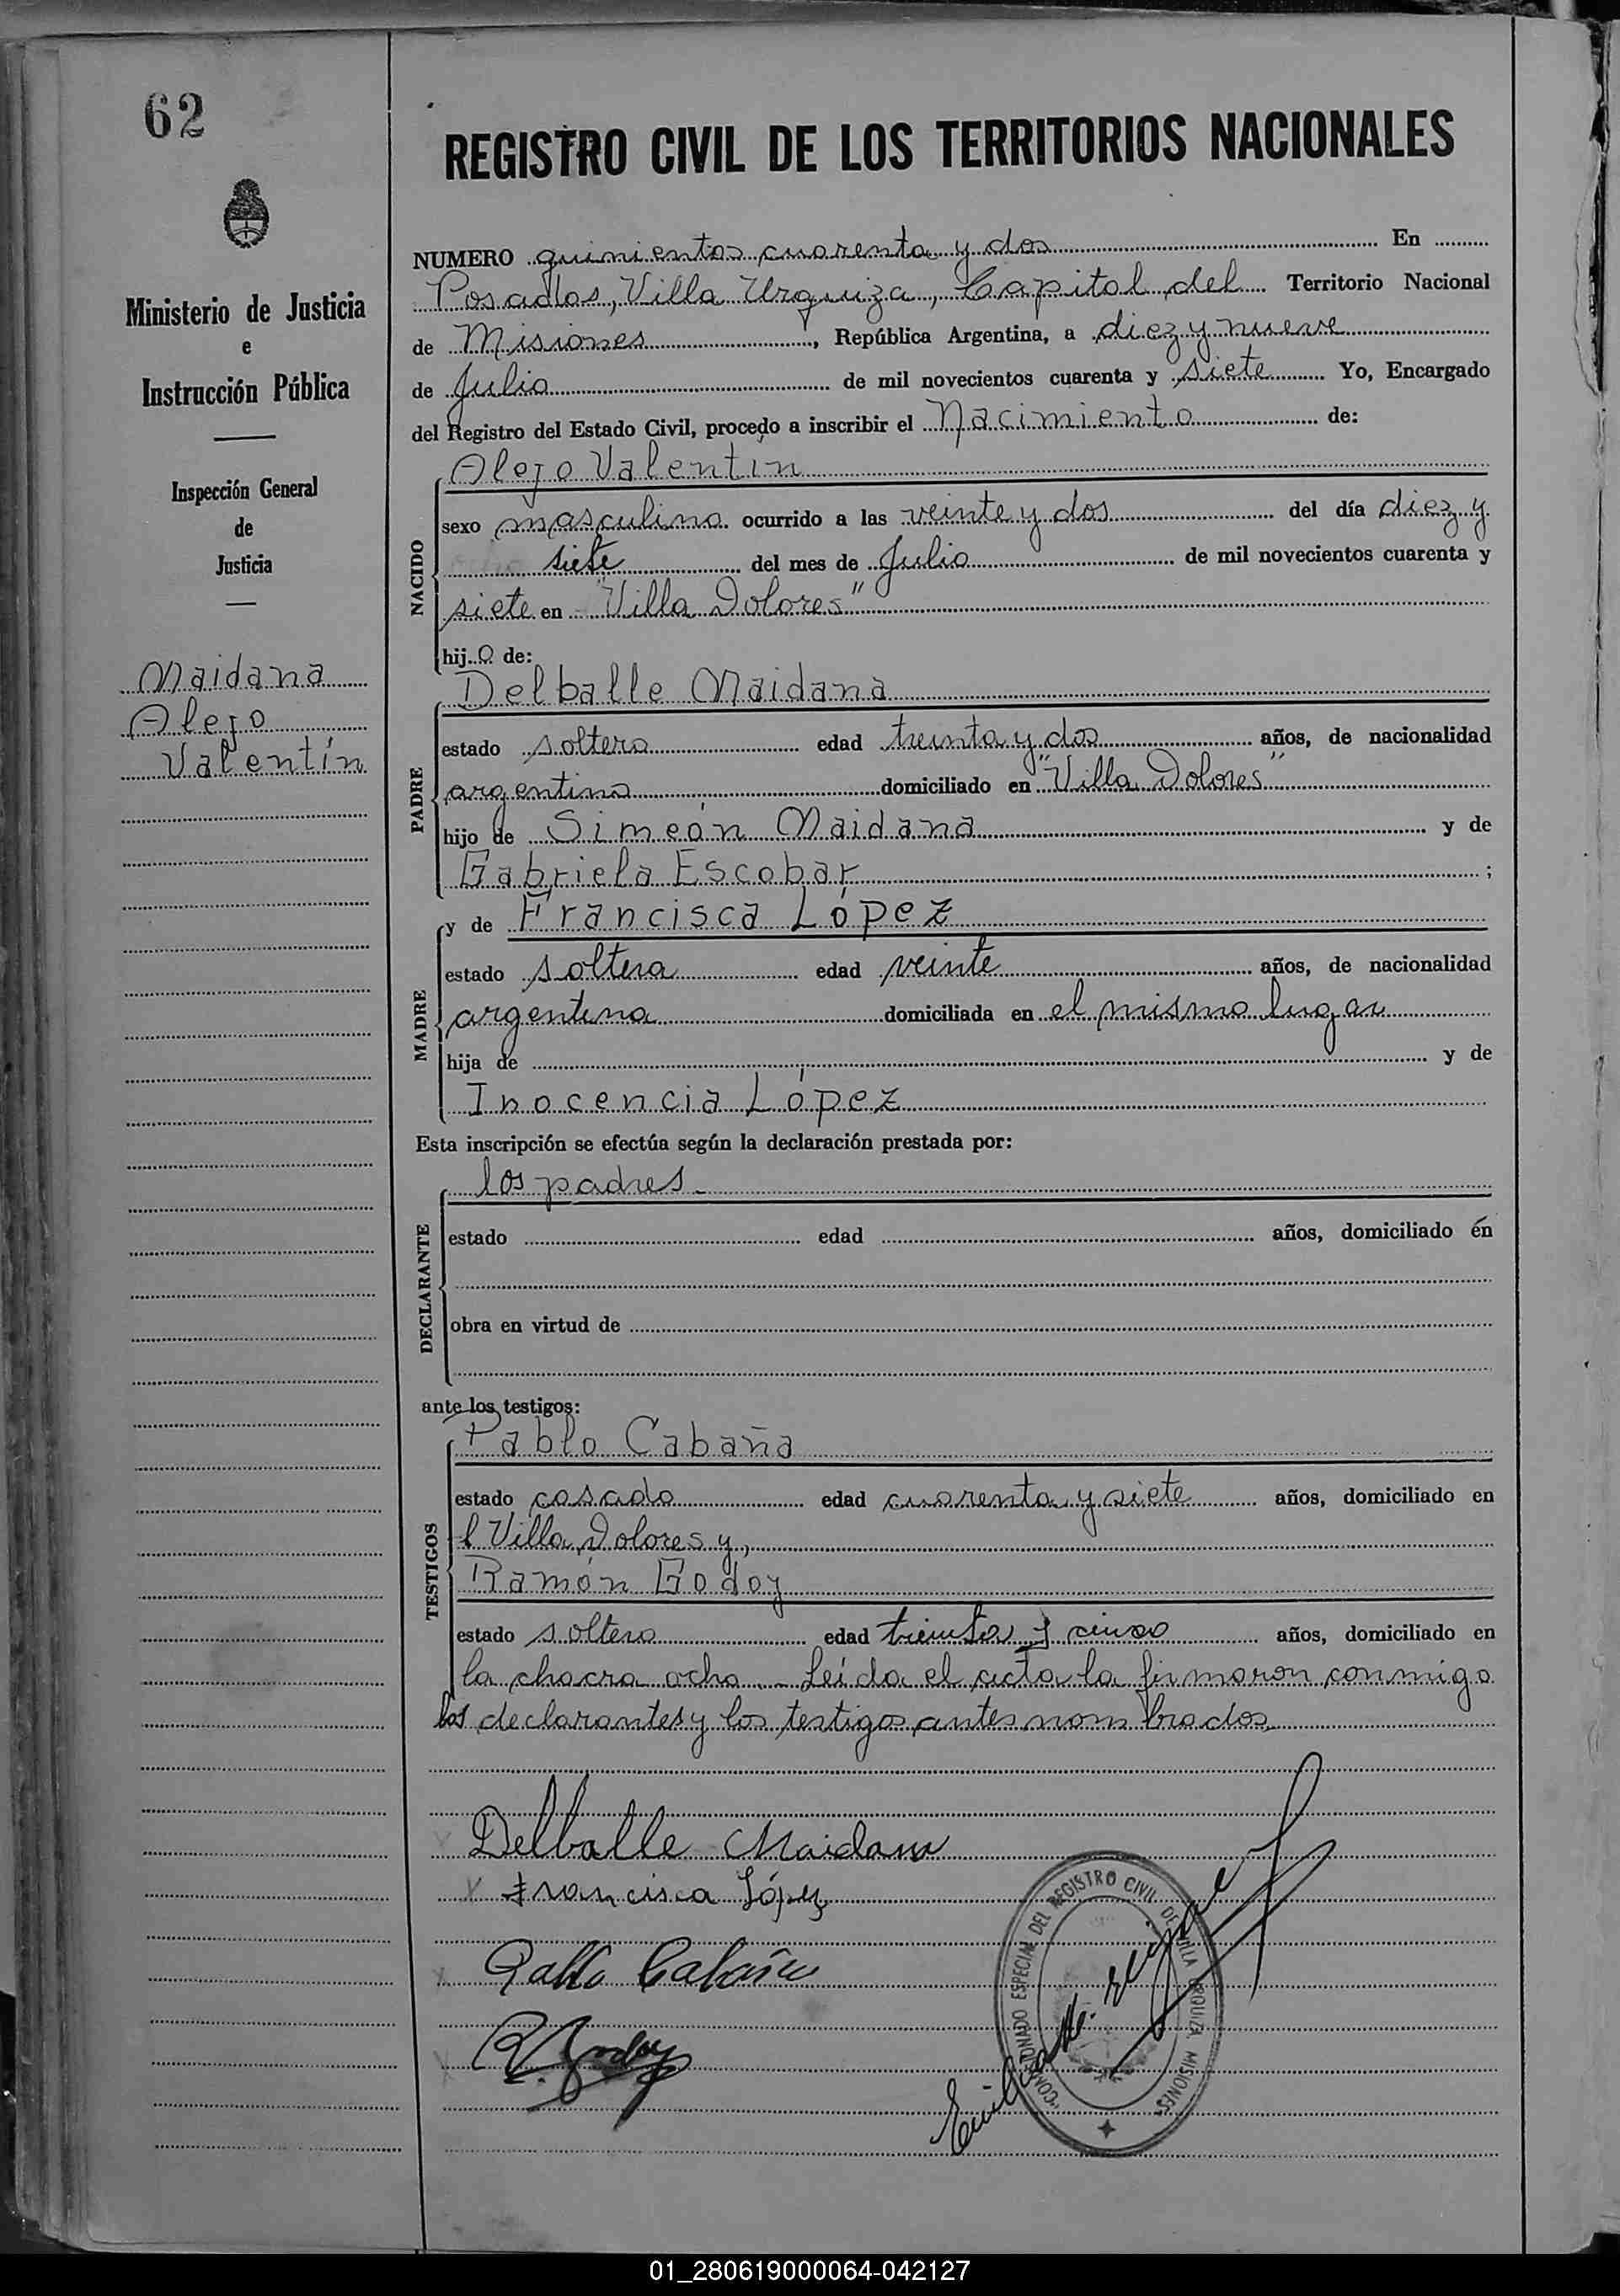 62
REGISTRO CIVIL DE LOS TERRITORIOS NACIONALES
Ministerio de Justicia
e
Instrucción Pública
Inspección General
de
Justicia
Maidana
Alejo
Valentín
NUMERO quinientos cuarenta y dos En
Posadas, Villa Urquiza, Capital del Territorio Nacional
de Misiones, República Argentina, a diez y nueve
de Julio de mil novecientos cuarenta y siete Yo, Encargado
del Registro del Estado Civil, procedo a inscribir el Nacimiento de:
NACIDO
Alejo Valentín
sexo masculino ocurrido a las veinte y dos del día diez y
siete del mes de Julio de mil novecientos cuarenta y
siete en "Villa Dolores"
hijo de:
PADRE
Delballe Maidana
estado soltero edad treinta y dos años, de nacionalidad
argentino domiciliado en "Villa Dolores"
hijo de Simeón Maidana y de
Gabriela Escobar ;
MADRE
y de Francisca López
estado soltera edad veinte años, de nacionalidad
argentina domiciliada en el mismo lugar
hija de y de
Inocencia López
Esta inscripción se efectúa según la declaración prestada por:
DECLARANTE
los padres
estado edad años, domiciliado en
obra en virtud de
ante los testigos:
TESTIGOS
Pablo Cabaña
estado casado edad cuarenta y siete años, domiciliado en
Villa Dolores y,
Ramón Godoy
estado soltero edad treinta y cinco años, domiciliado en
la chacra ocho.- Leída el acta la firmaron conmigo
los declarantes y los testigos antes nombrados
Delballe Maidana
Francisca López
Pablo Cabaña
R. Godoy
COMISIONADO ESPECIAL DEL REGISTRO CIVIL DE VILLA URQUIZA MISIONES
01_280619000064-042127